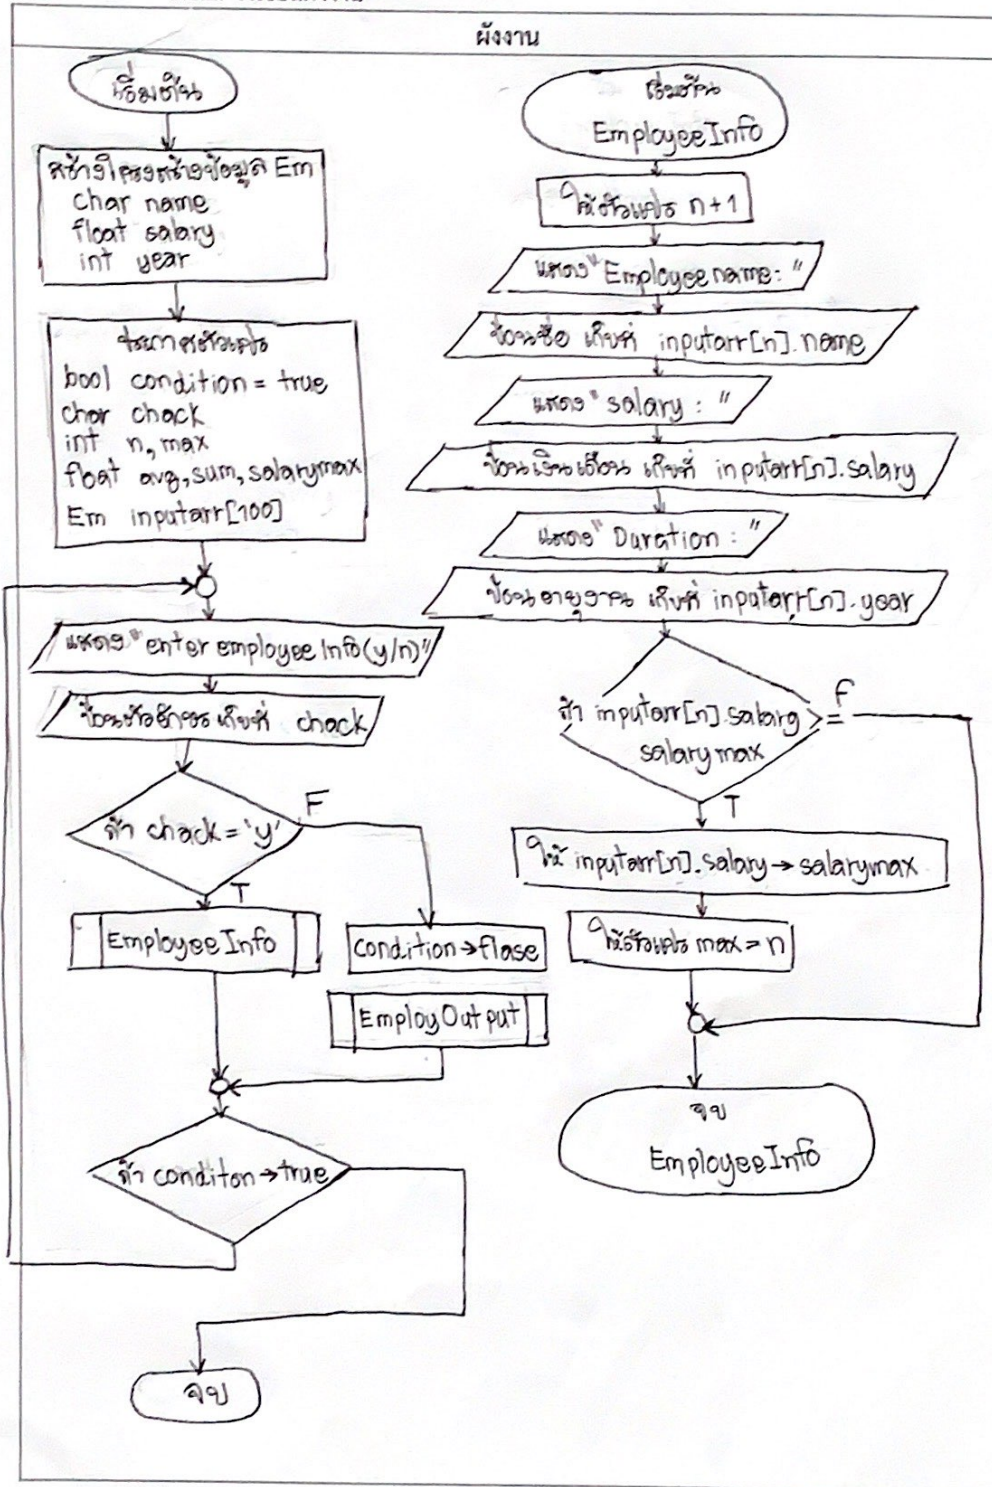 ผังงาน
เริ่มต้น
สร้างโครงสร้างข้อมูล Em
char name
float salary
int year
ประกาศตัวแปร
bool condition = true
char chack
int n, max
float avg, sum, salarymax
Em inputarr[100]
แสดง "enter employee Info (y/n)"
ป้อนตัวอักษร เก็บที่ chack
ถ้า chack = 'y'
F
T
EmployeeInfo
condition → flase
EmployOutput
ถ้า conditon → true
จบ
เริ่มต้น
EmployeeInfo
ให้ตัวแปร n+1
แสดง "Employee name : "
ป้อนชื่อ เก็บที่ inputarr[n].name
แสดง " salary : "
ป้อนเงินเดือน เก็บที่ inputarr[n].salary
แสดง " Duration : "
ป้อนอายุงาน เก็บที่ inputarr[n].year
ถ้า inputarr[n].salary >=
salary max
F
T
ให้ inputarr[n].salary → salarymax
ให้ตัวแปร max = n
จบ
EmployeeInfo